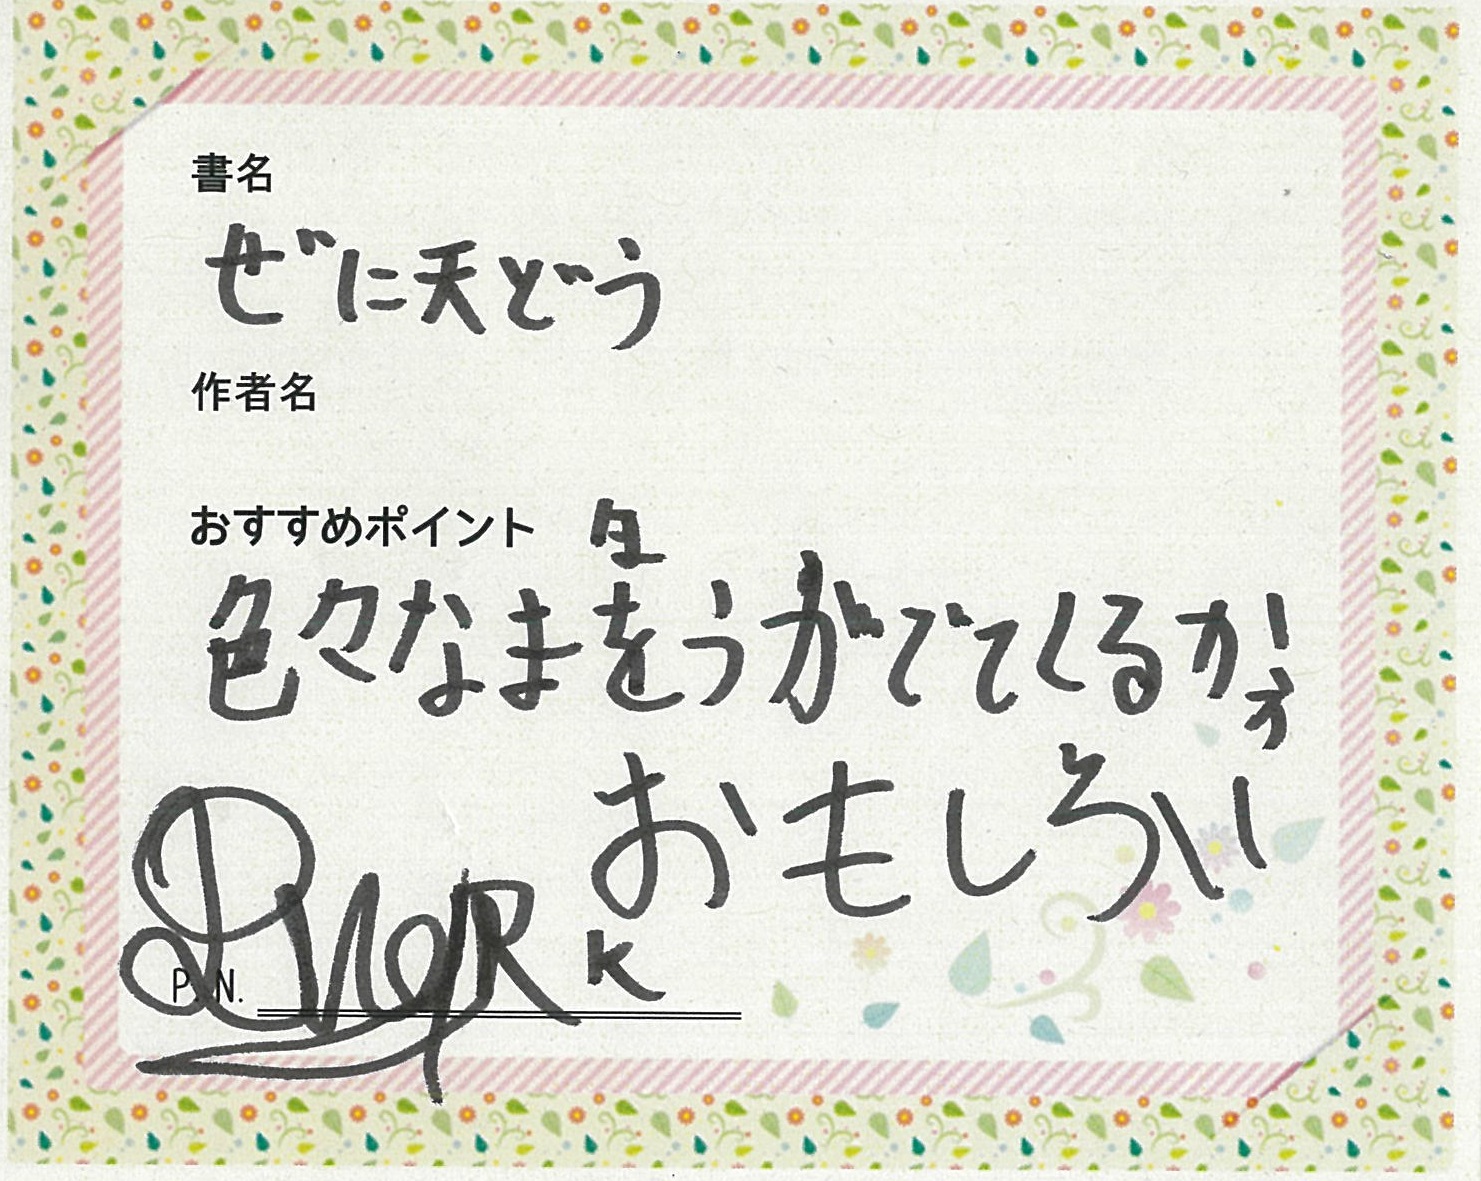 書名
ぜに天どう
作者名
おすすめポイント
色々なまをうがでてくるから
おもしろい
P.N.
K